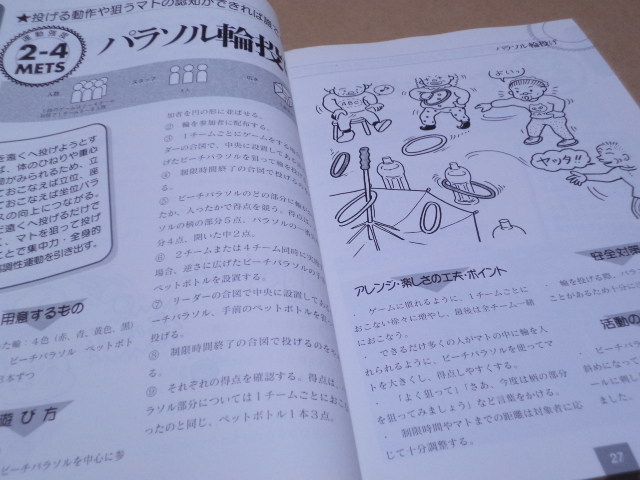 ★投げる動作や狙うマトの認知ができれば
運動強度
2-4
METS
パラソル輪投
人数
スタッフ
を遠くへ投げようとす
ば、体のひねりや重心
動がみられるため、立
ておこなえば立位、座
ておこなえば坐位バラ
スの向上につながる。
に遠くへ投げるだけで
く、マトを狙って投げ
ことで集中力・全身的
協調性運動を引き出す。
用意するもの
った輪 4色（赤、青、黄色、黒）
ビーチパラソル ペットボト
本ずつ
遊び方
ビーチパラソルを中心に参
加者を円の形に並ばせる。
② 輪を参加者に配布する。
③ 1チームごとにゲームをする
ーダーの合図で、中央に設置してあ
げたビーチパラソルを狙って輪を投
④ 制限時間終了の合図で投げるの
る。
⑤ ビーチパラソルのどの部分に輪が
たか、入ったかで得点を競う。得点は
ソルの柄の部分5点、パラソルの一番
分4点、開いた中2点。
⑥ 2チームまたは4チーム同時に
場合、逆さに広げたビーチパラソルの
ペットボトルを設置する。
⑦ リーダーの合図で中央に設置してあ
ーチパラソル、手前のペットボトルを狙っ
投げる。
⑧ 制限時間終了の合図で投げるのを
る。
⑨ それぞれの得点を確認する。得点は、
ラソル部分については1チームごとにおこ
ったのと同じ、ペットボトル1本3点。
パラソル輪投げ
ABC
よいっ
ヤッタ!!
アレンジ・楽しさの工夫・ポイント
・ ゲームに慣れるように、1チームごとに
おこない徐々に増やし、最後は全チーム一緒
におこなう。
・ できるだけ多くの人がマトの中に輪を入
れられるように、ビーチパラソルを使ってマ
トを大きくし、得点しやすくする。
・ 「よく狙って」「さあ、今度は柄の部分
を狙ってみましょう」など言葉をかける。
・ 制限時間やマトまでの距離は対象者に応
じて十分調整する。
安全対策
・ 輪を投げる際、
ことがあるため十分に
活動の
ビーチパラ
斜めになって
ールに刺し
ました。
27